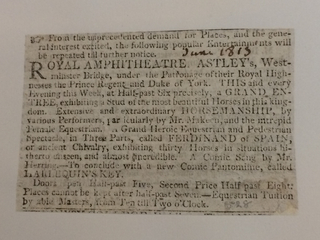 From the unprecedented demand for Places, and the gene-
ral interest excited, the following popular Entertainments will
be repeated till further notice.
June 1815
ROYAL AMPHITHEATRE, ASTLEY'S, West-
minster Bridge, under the Patronage of their Royal High-
nesses the Prince Regent and Duke of York. THIS and every
Evening this Week, at Half-past Six precisely, a GRAND EN-
TREE, exhibiting a Stud of the most beautiful Horses in this king-
dom. Extensive and extraordinary HORSEMANSHIP, by
various Performers, particularly by Mr. Makeen, and the intrepid
Female Equestrian. A Grand Heroic Equestrian and Pedestrian
Spectacle, in Three Parts, called FERDINAND of SPAIN;
or ancient Chivalry, exhibiting thirty Horses in situations hi-
therto unseen, and almost incredible. A Comic Song by Mr.
Herring.—To conclude with a new Comic Pantomime, called
HARLEQUIN'S KEY.
Doors open Half-past Five, Second Price Half-past Eight:
Places cannot be kept after half-past Seven.—Equestrian Tuition
by able Masters, from Ten till Two o'Clock.